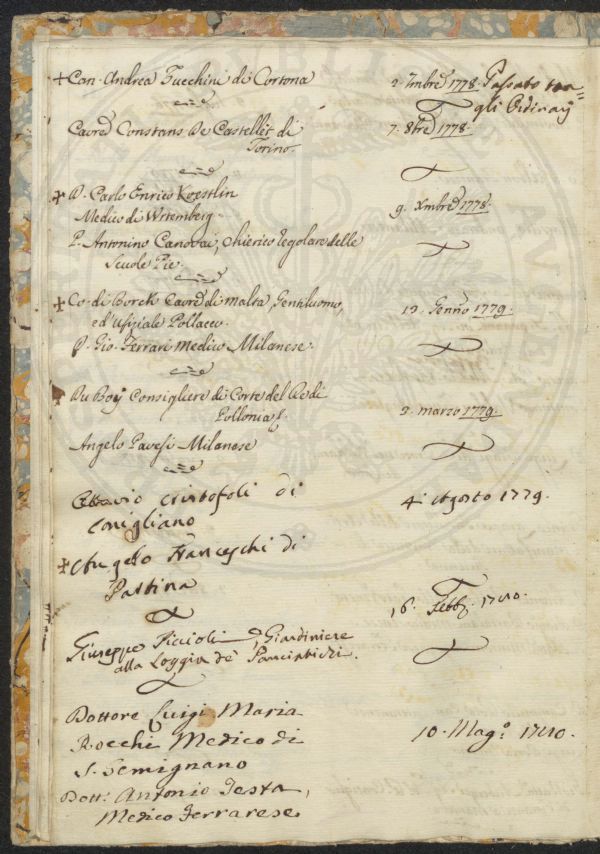 + Can. Andrea Zucchini di Cortona
2. 7mbre 1778. Passato tra
gli Ordinarj
Cavre Constans De Castellèt di
Torino.
7. 8bre 1778.
+ D. Carlo Enrico Koestlin
Medico di Wrtemberg.
9. Xmbre 1778.
P. Antonino Canovai, Chierico Regolare delle
Scuole Pie.
+ Co. di Borch Cavre di Malta, Gentiluomo,
ed'Ufiziale Pollacco.
Gennro 1779.
D. Gio. Ferrari Medico Milanese.
+ Du Boy Consigliere di Corte del Re di
Pollonia
3. Marzo 1779.
Angelo Pavesi Milanese
Ottavio Cristofoli di
Conigliano
4. Agosto 1779.
+ Angelo Franceschi di
Pastina
16. Febb. 1780.
Giuseppe Piccioli, Giardiniere
alla Loggia de' Panciatichi.
Dottore Luigi Maria
Rocchi Medico di
S. Gemignano
10. Mago. 1780.
Dott: Antonio Testa,
Medico Ferrarese.